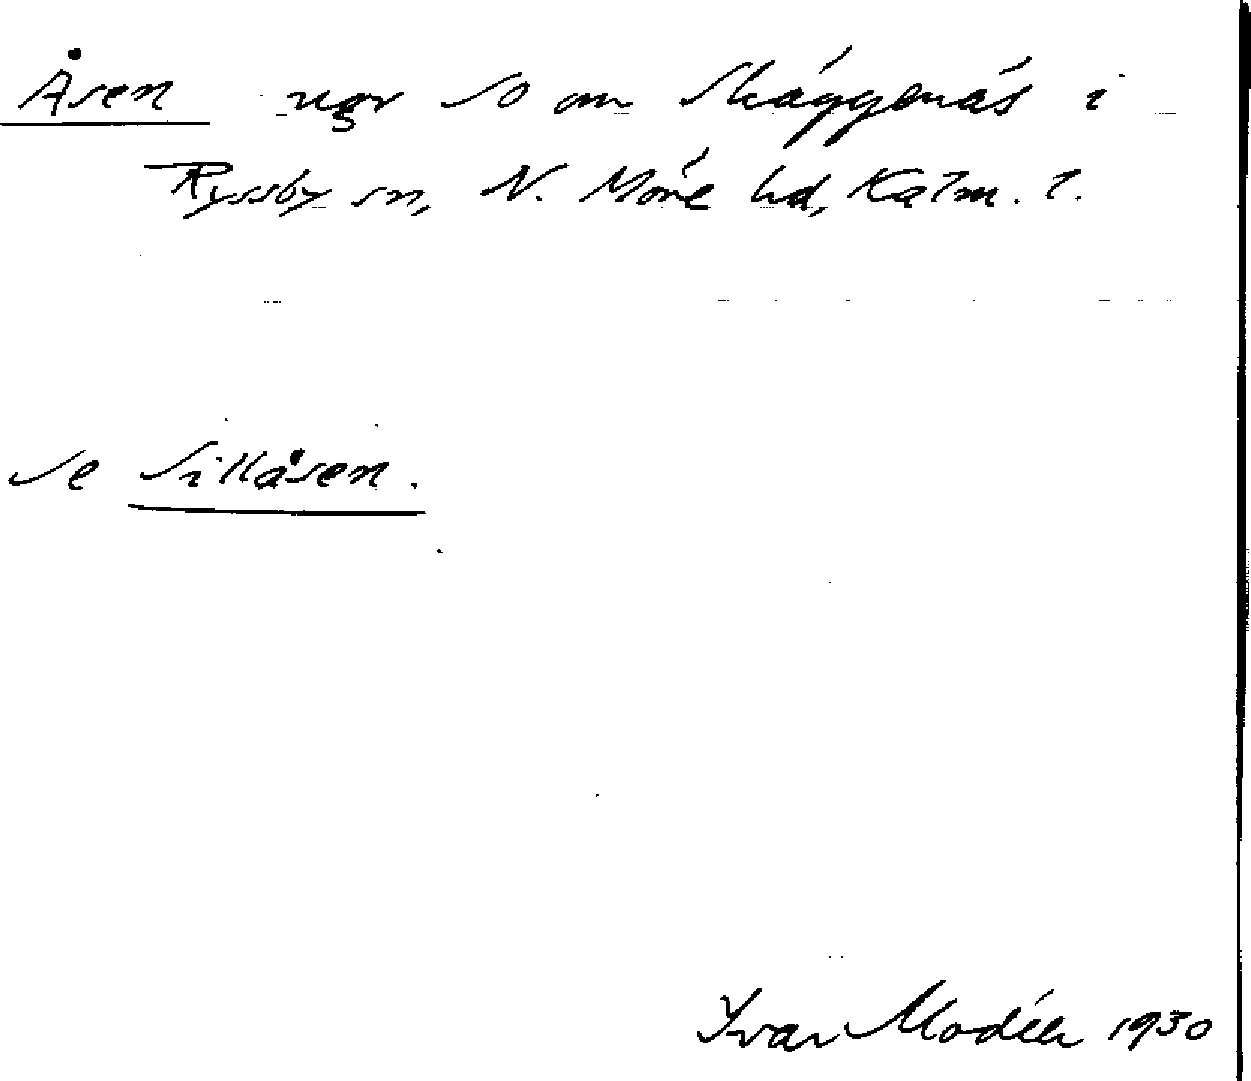 Åsen ugr SO om Skäggenäs i
Ryssby sn, N. Möre hd, Kalm. l.
Se Sillåsen.
Ivar Modéer 1930